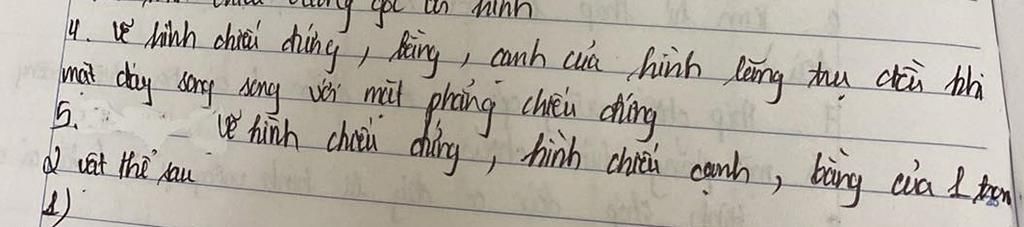 vuông góc
hình
4. Vẽ hình chiếu đứng, bằng, cạnh của hình lăng trụ đều khi
mặt đáy song song với mặt phẳng chiếu đứng
5. Vẽ hình chiếu đứng, hình chiếu cạnh, bằng của 1 trong
2 vật thể sau
1)